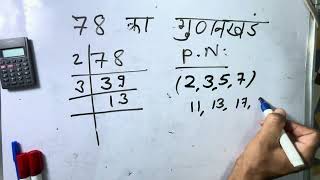 78 का गुणनखंड
2 | 78
3 | 39
13
P.N:
(2,3,5,7)
11, 13, 17,